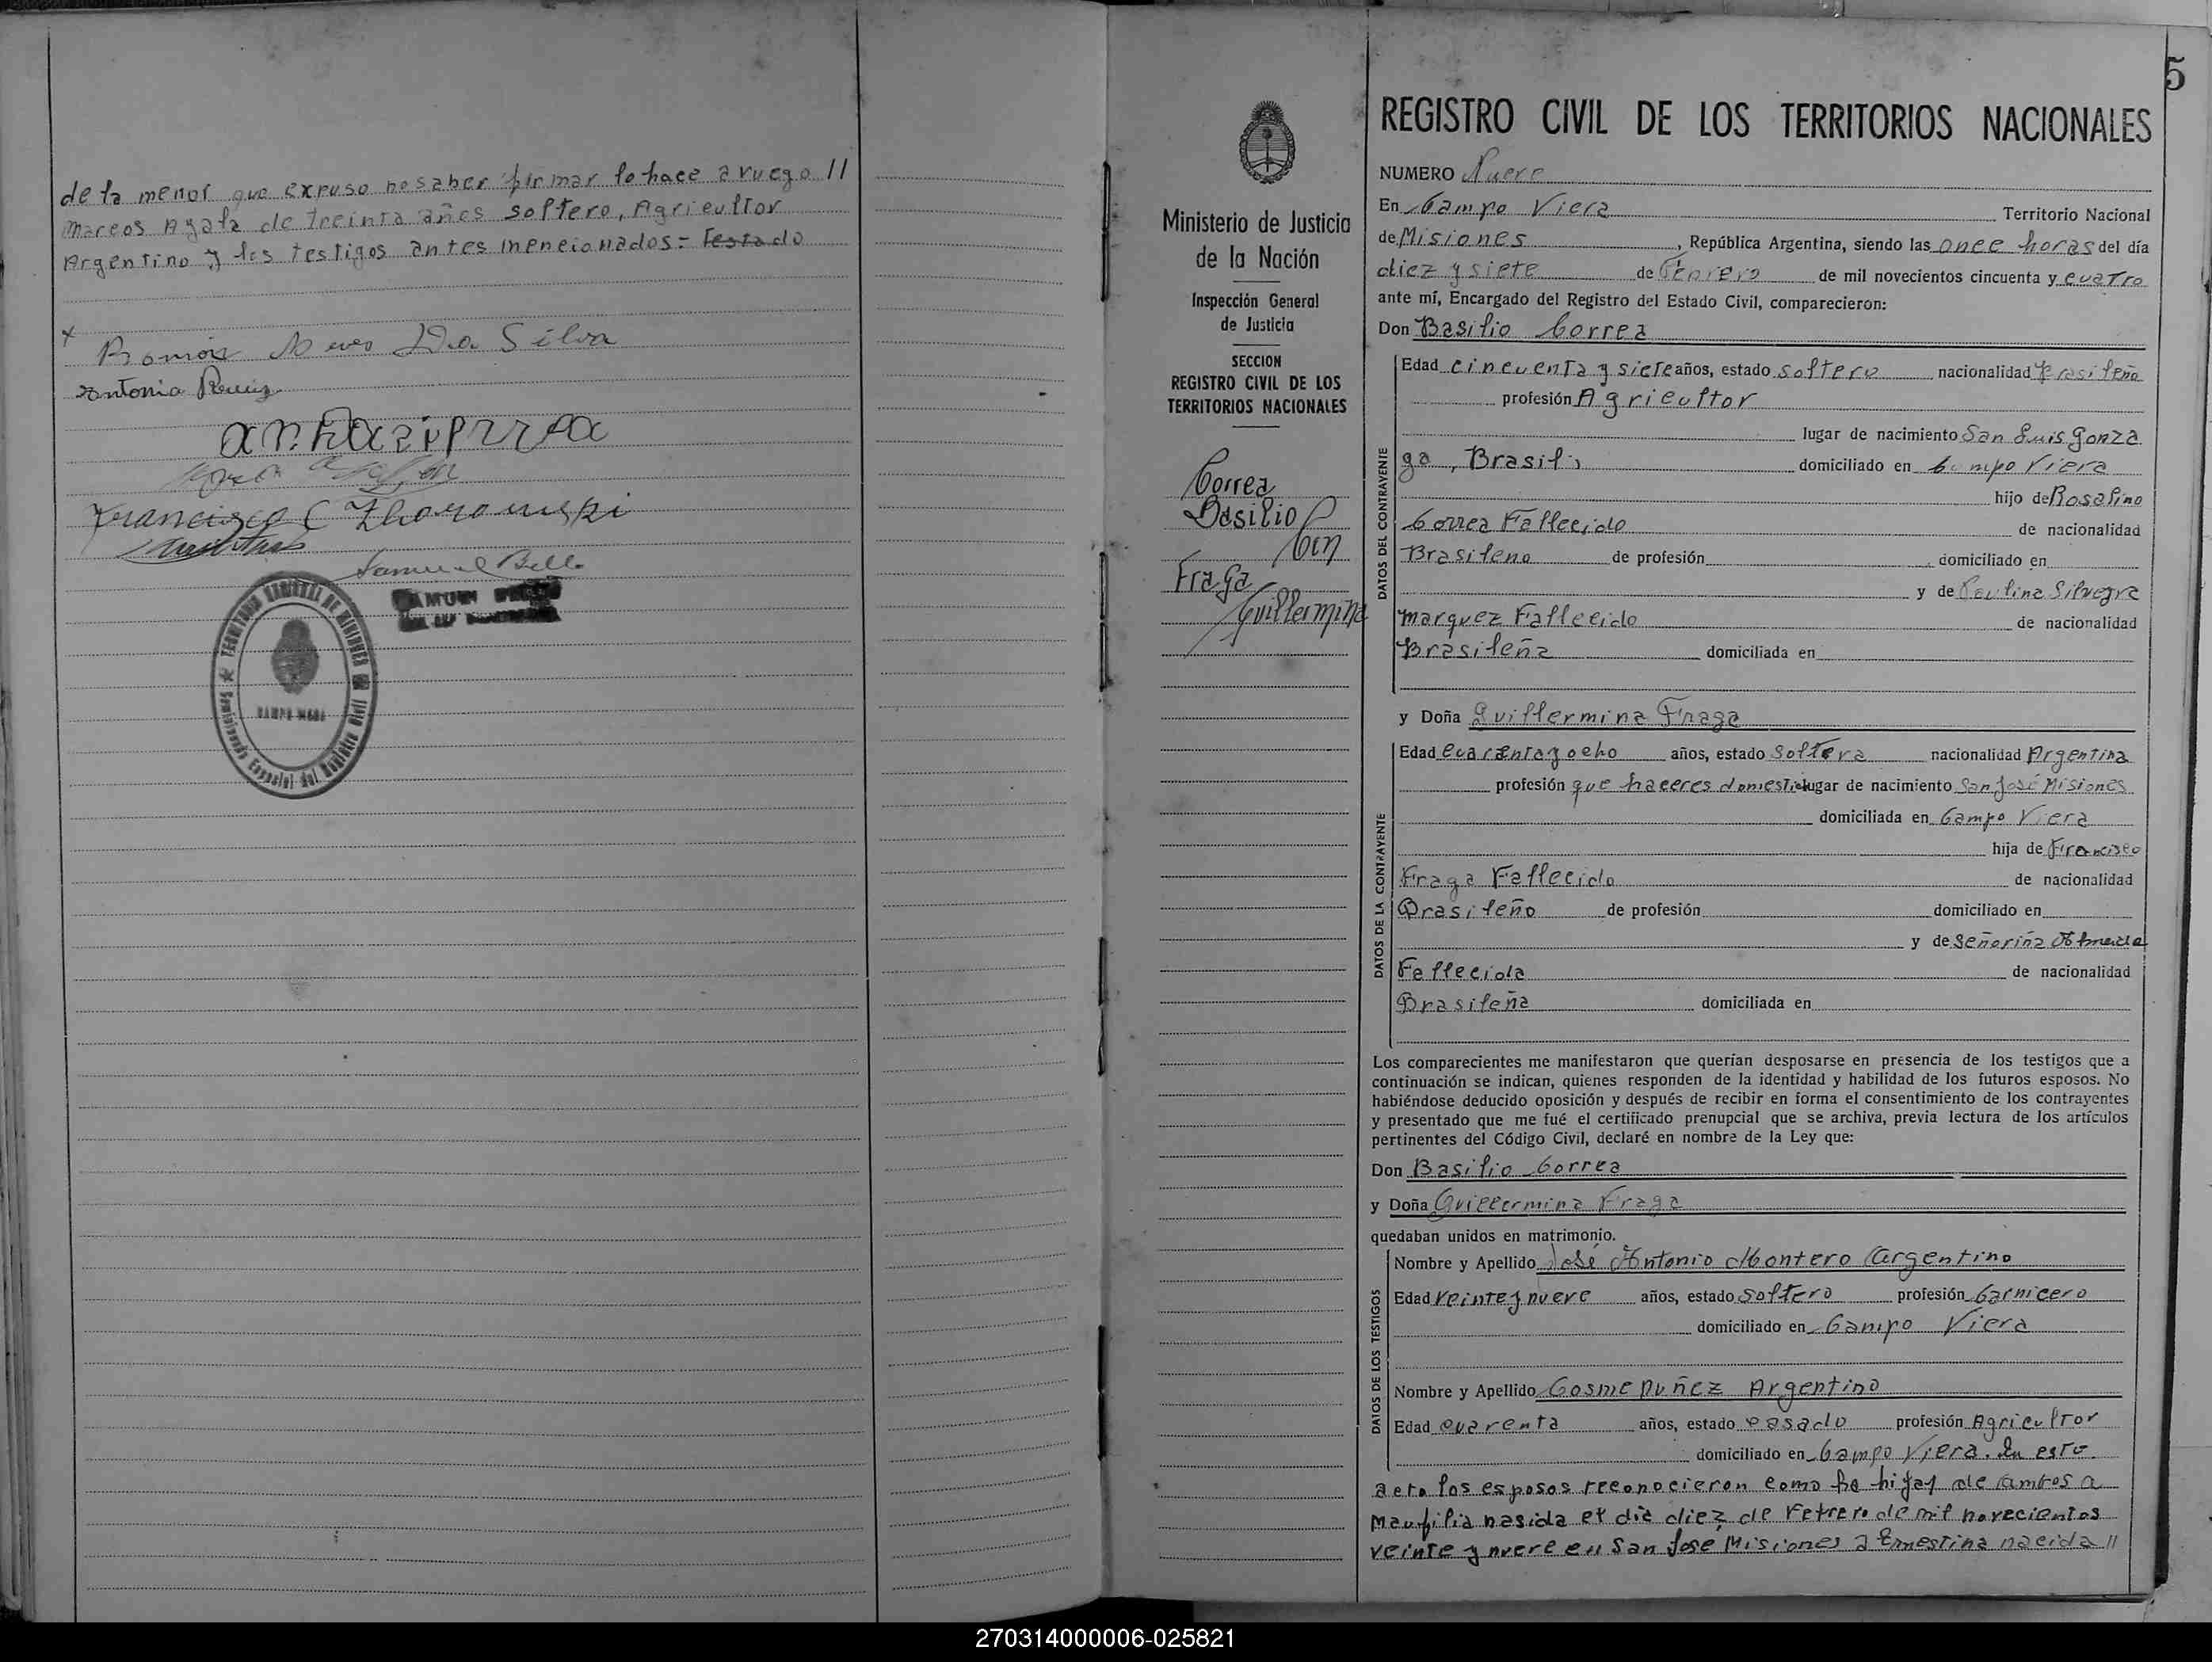 de la menor que expuso no saber firmar lo hace a ruego //
Marcos Ayala de treinta años soltero, Agricultor
Argentino y los testigos antes mencionados = Testado
x
Ramón Neves Da Silva
Antonia
Francisco
Samuel Bello
TERRITORIO NACIONAL DE MISIONES
CAMPO VIERA
del Registro Civil
5
Ministerio de Justicia
de la Nación
Inspección General
de Justicia
SECCION
REGISTRO CIVIL DE LOS
TERRITORIOS NACIONALES
Correa
Basilio
Con
Fraga
Guillermina
REGISTRO CIVIL DE LOS TERRITORIOS NACIONALES
NUMERO Nueve
En Campo Viera Territorio Nacional
de Misiones, República Argentina, siendo las once horas del día
diez y siete de Febrero de mil novecientos cincuenta y cuatro
ante mí, Encargado del Registro del Estado Civil, comparecieron:
Don Basilio Correa
DATOS DEL CONTRAYENTE
Edad cincuenta y siete años, estado soltero nacionalidad Brasileña
profesión Agricultor
lugar de nacimiento San Luis Gonza
ga, Brasil, domiciliado en Campo Viera
hijo de Rosalino
Correa Fallecido de nacionalidad
Brasileno de profesión domiciliado en
y de Paulina Silveyra
Marquez Fallecido de nacionalidad
Brasileña domiciliada en
y Doña Guillermina Fraga
DATOS DE LA CONTRAYENTE
Edad cuarenta y ocho años, estado soltera nacionalidad Argentina
profesión que haceres domestic lugar de nacimiento San José Misiones
domiciliada en Campo Viera
hija de Francisco
Fraga Fallecido de nacionalidad
Brasileño de profesión domiciliado en
y de Señoriña Almeida
Fallecida de nacionalidad
Brasileña domiciliada en
Los comparecientes me manifestaron que querían desposarse en presencia de los testigos que a
continuación se indican, quienes responden de la identidad y habilidad de los futuros esposos. No
habiéndose deducido oposición y después de recibir en forma el consentimiento de los contrayentes
y presentado que me fué el certificado prenupcial que se archiva, previa lectura de los artículos
pertinentes del Código Civil, declaré en nombre de la Ley que:
Don Basilio Correa
y Doña Guillermina Fraga
quedaban unidos en matrimonio.
DATOS DE LOS TESTIGOS
Nombre y Apellido José Antonio Montero Argentino
Edad veinte y nueve años, estado soltero profesión Carnicero
domiciliado en Campo Viera
Nombre y Apellido Cosme nuñez Argentino
Edad cuarenta años, estado casado profesión Agricultor
domiciliado en Campo Viera. En este
acto los esposos reconocieron como ha hijas de ambos a
Maufilia nasida el dia diez de Febrero de mil novecientos
veinte y nueve en San José Misiones a Ernestina nacida //
270314000006-025821